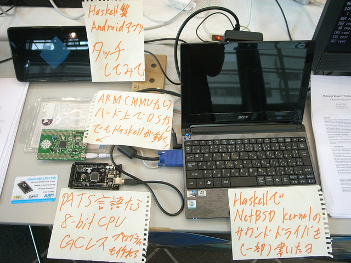 Haskell製
Androidアプリ
タッチ
してみて
ARM(MMUなし)
ハード上でOSなし
でもHaskellが動く
ATS言語なら
8-bit CPU
GCレス プログラム
も作れる
Haskellで
NetBSD kernelの
サウンドドライバを
(一部)書いたよ
acer